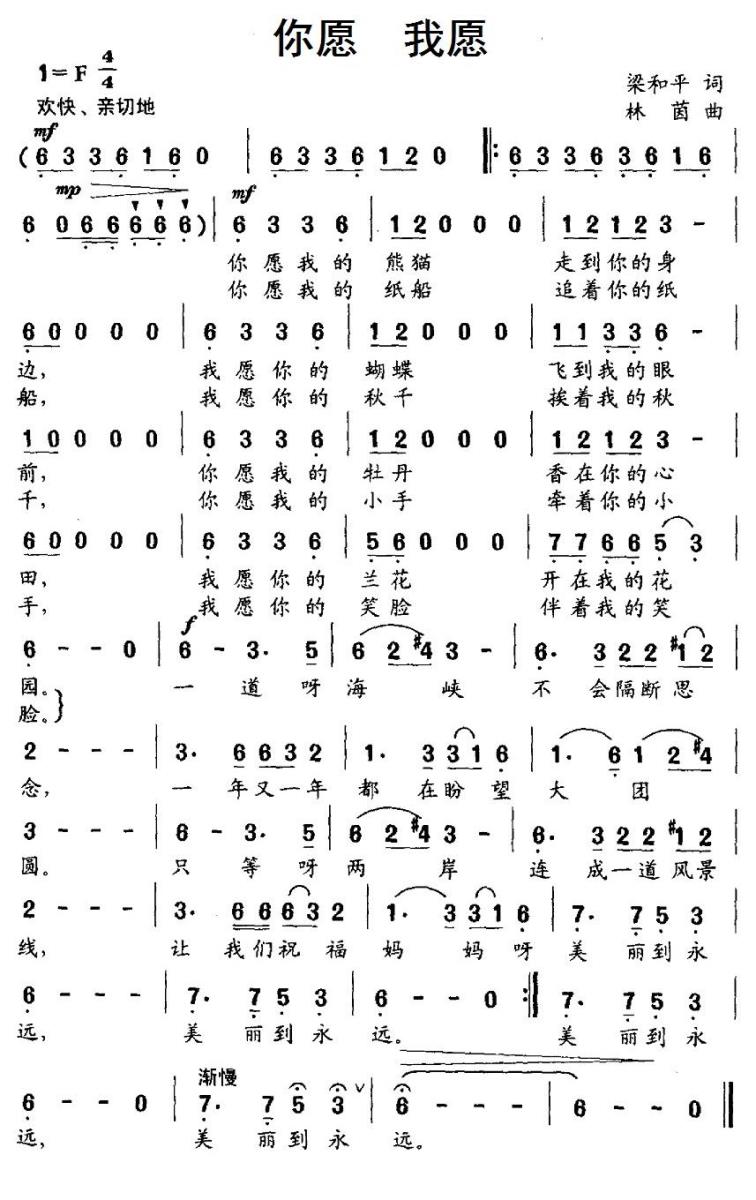 你愿 我愿
1=F 4/4
梁和平 词
欢快、亲切地
林茵 曲
mf
(6 3 3 6 1 6 0 | 6 3 3 6 1 2 0 |: 6 3 3 6 3 6 1 6 |
mp mf
6 0 6 6 6 6 6) | 6 3 3 6 | 1 2 0 0 0 | 1 2 1 2 3 - |
你愿我的 熊猫 走到你的身
你愿我的 纸船 追着你的纸
6 0 0 0 0 | 6 3 3 6 | 1 2 0 0 0 | 1 1 3 3 6 - |
边, 我愿你的 蝴蝶 飞到我的眼
船, 我愿你的 秋千 挨着我的秋
1 0 0 0 0 | 6 3 3 6 | 1 2 0 0 0 | 1 2 1 2 3 - |
前, 你愿我的 牡丹 香在你的心
千, 你愿我的 小手 牵着你的小
6 0 0 0 0 | 6 3 3 6 | 5 6 0 0 0 | 7 7 6 6 5 3 |
田, 我愿你的 兰花 开在我的花
手, 我愿你的 笑脸 伴着我的笑
f
6 - - 0 | 6 - 3. 5 | 6 2 #4 3 - | 6. 3 2 2 #1 2 |
园。 一道呀 海峡 不会隔断思
脸。}
2 - - - | 3. 6 6 3 2 | 1. 3 3 1 6 | 1. 6 1 2 #4 |
念, 一年又一年 都在盼望 大团
3 - - - | 6 - 3. 5 | 6 2 #4 3 - | 6. 3 2 2 #1 2 |
圆。 只等呀 两岸 连成一道风景
2 - - - | 3. 6 6 6 3 2 | 1. 3 3 1 6 | 7. 7 5 3 |
线, 让我们祝福 妈妈呀 美丽到永
6 - - - | 7. 7 5 3 | 6 - - 0 :| 7. 7 5 3 |
远, 美丽到永 远。 美丽到永
渐慢
6 - - 0 | 7. 7 5 3 ∨ | 6 - - - | 6 - - 0 ‖
远, 美丽到永 远。